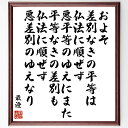 およそ
差別なきの平等は
仏法に順ぜず
悪平等のゆえにまた
平等なきの差別も
仏法に順ぜず
悪差別のゆえなり
最澄